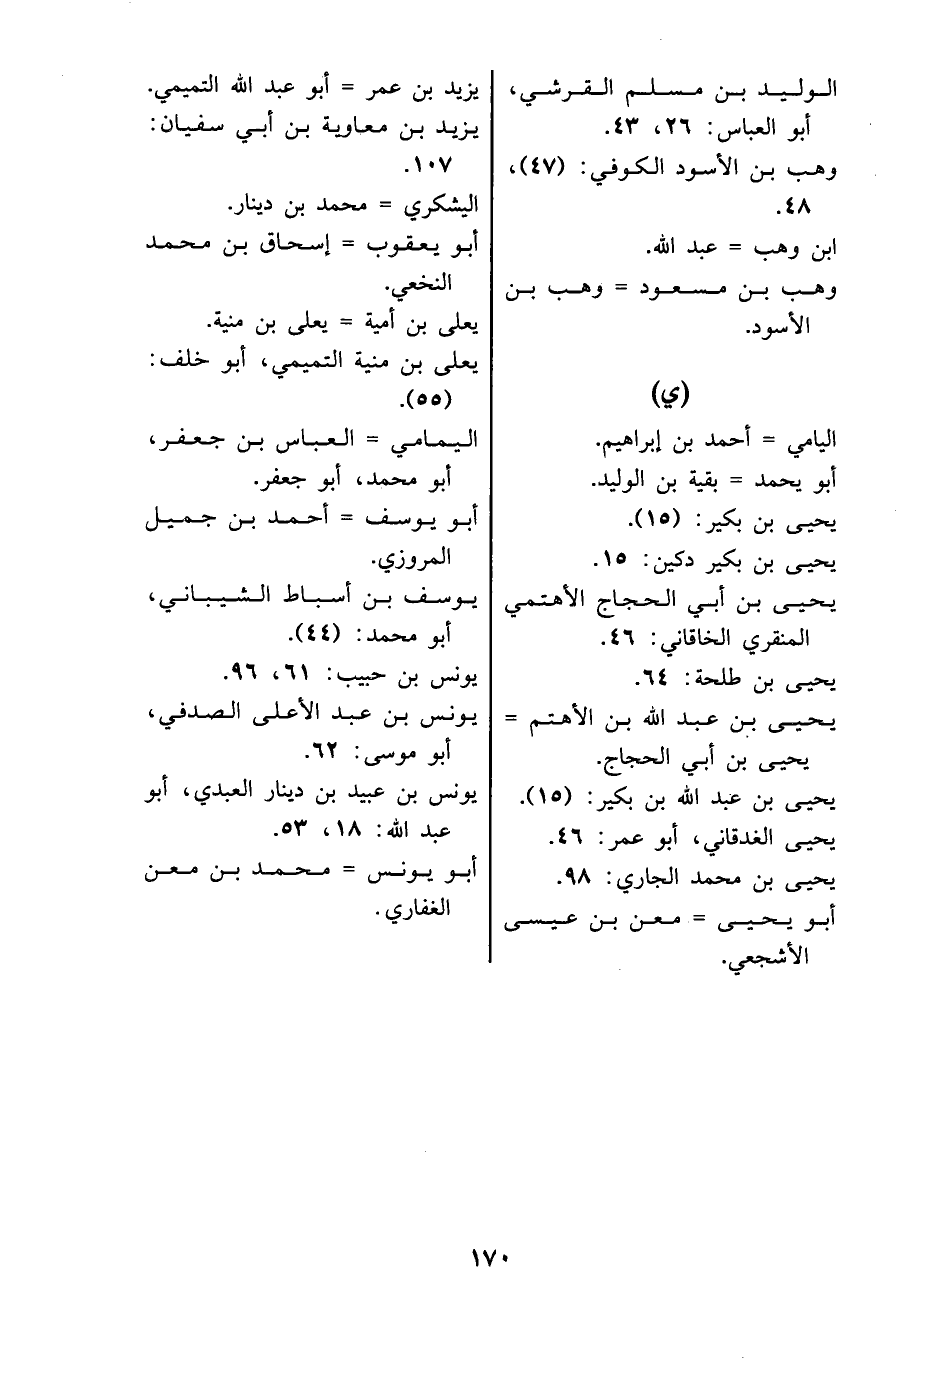 الوليد بن مسلم القرشي،
أبو العباس: ٢٦، ٤٣.
وهب بن الأسود الكوفي: (٤٧)،
٤٨.
ابن وهب = عبد الله.
وهب بن مسعود = وهب بن
الأسود.
(ي)
اليامي = أحمد بن إبراهيم.
أبو يحمد = بقية بن الوليد.
يحيى بن بكير: (١٥).
يحيى بن بكير دكين: ١٥.
يحيى بن أبي الحجاج الأهتمي
المنقري الخاقاني: ٤٦.
يحيى بن طلحة: ٦٤.
يحيى بن عبد الله بن الأهتم =
يحيى بن أبي الحجاج.
يحيى بن عبد الله بن بكير: (١٥).
يحيى الغدقاني، أبو عمر: ٤٦.
يحيى بن محمد الجاري: ٩٨.
أبو يحيى = معن بن عيسى
الأشجعي.
يزيد بن عمر = أبو عبد الله التميمي.
يزيد بن معاوية بن أبي سفيان:
١٠٧.
اليشكري = محمد بن دينار.
أبو يعقوب = إسحاق بن محمد
النخعي.
يعلى بن أمية = يعلى بن منية.
يعلى بن منية التميمي، أبو خلف:
(٥٥).
اليمامي = العباس بن جعفر،
أبو محمد، أبو جعفر.
أبو يوسف = أحمد بن جميل
المروزي.
يوسف بن أسباط الشيباني،
أبو محمد: (٤٤).
يونس بن حبيب: ٦١، ٩٦.
يونس بن عبد الأعلى الصدفي،
أبو موسى: ٦٢.
يونس بن عبيد بن دينار العبدي، أبو
عبد الله: ١٨، ٥٣.
أبو يونس = محمد بن معن
الغفاري.
١٧٠